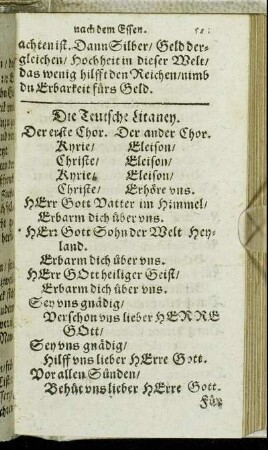 nach dem Essen.
achten ist. Dann Silber/ Geld der-
gleichen/ Hochheit in dieser Welt/
das wenig hilfft den Reichen/ nimb
du Erbarkeit fürs Geld.
Die Teutsche Litaney.
Der erste Chor. Der ander Chor.
Kyrie/ Eleison/
Christe/ Eleison/
Kyrie/ Eleison/
Christe/ Erhöre vns.
HErr Gott Vatter im Himmel/
Erbarm dich über vns.
HErr Gott Sohn der Welt Hey-
land.
Erbarm dich über vns.
HErr GOtt heiliger Geist/
Erbarm dich über vns.
Sey vns gnädig/
Verschon vns lieber HERRE
GOtt/
Sey vns gnädig/
Hilff vns lieber HErre Gott.
Vor allen Sünden/
Behüt vns lieber HErre Gott.
Für